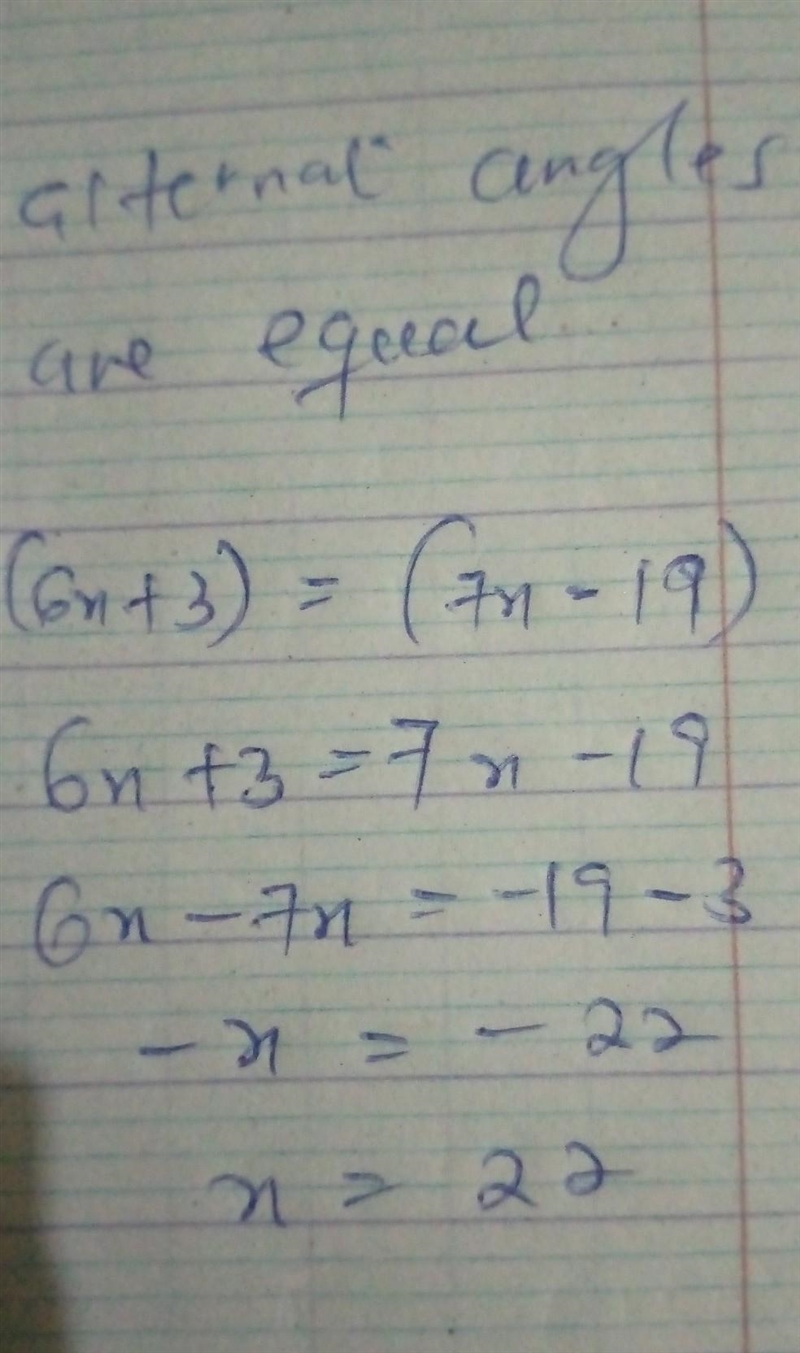 alternat angles
are equal
(6x+3) = (7x - 19)
6x +3 = 7x -19
6x - 7x = -19 - 3
- x = - 22
x = 22